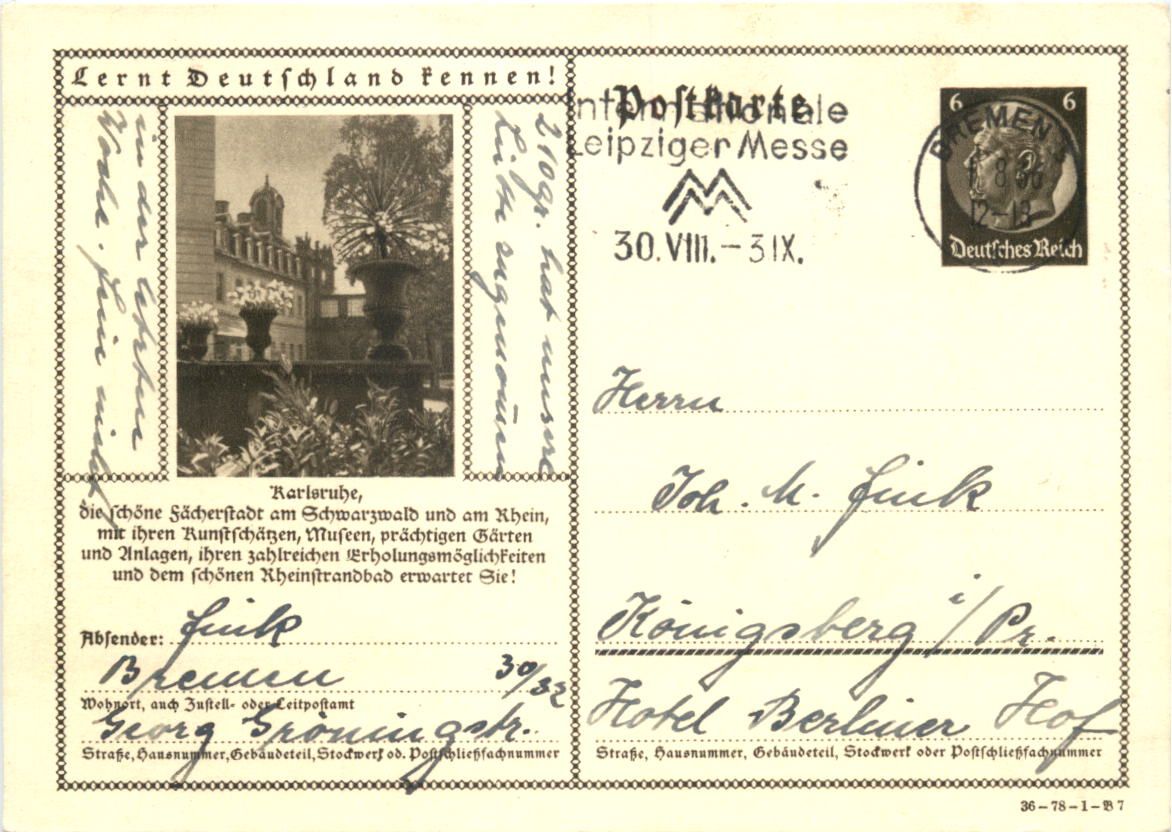 Lernt Deutschland kennen!
210gr. hat unsere
Lütte zugenom̄en
in der letzten
Woche. Fein nicht
Karlsruhe,
die schöne Fächerstadt am Schwarzwald und am Rhein,
mit ihren Kunstschätzen, Museen, prächtigen Gärten
und Anlagen, ihren zahlreichen Erholungsmöglichkeiten
und dem schönen Rheinstrandbad erwartet Sie!
Absender: Fink
Bremen 30/32
Wohnort, auch Zustell- oder Leitpostamt
Georg Gröningstr.
Straße, Hausnummer, Gebäudeteil, Stockwerk od. Postschließfachnummer
Postkarte
Internationale
Leipziger Messe
30.VIII.–3IX.
6 6
BREMEN
8 36
12–13
Deutsches Reich
Herrn
Joh. M. Fink
Königsberg i/Pr.
Hotel Berliner Hof
Straße, Hausnummer, Gebäudeteil, Stockwerk oder Postschließfachnummer
36–78–1–B7